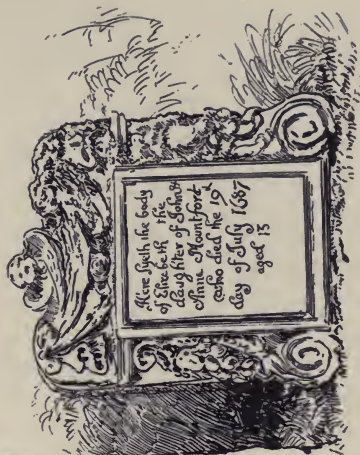 Here lyeth the body
of Elizabeth the
daughter of John &
Anne Mountfort
who died he 19th
day of July 1697
aged 13